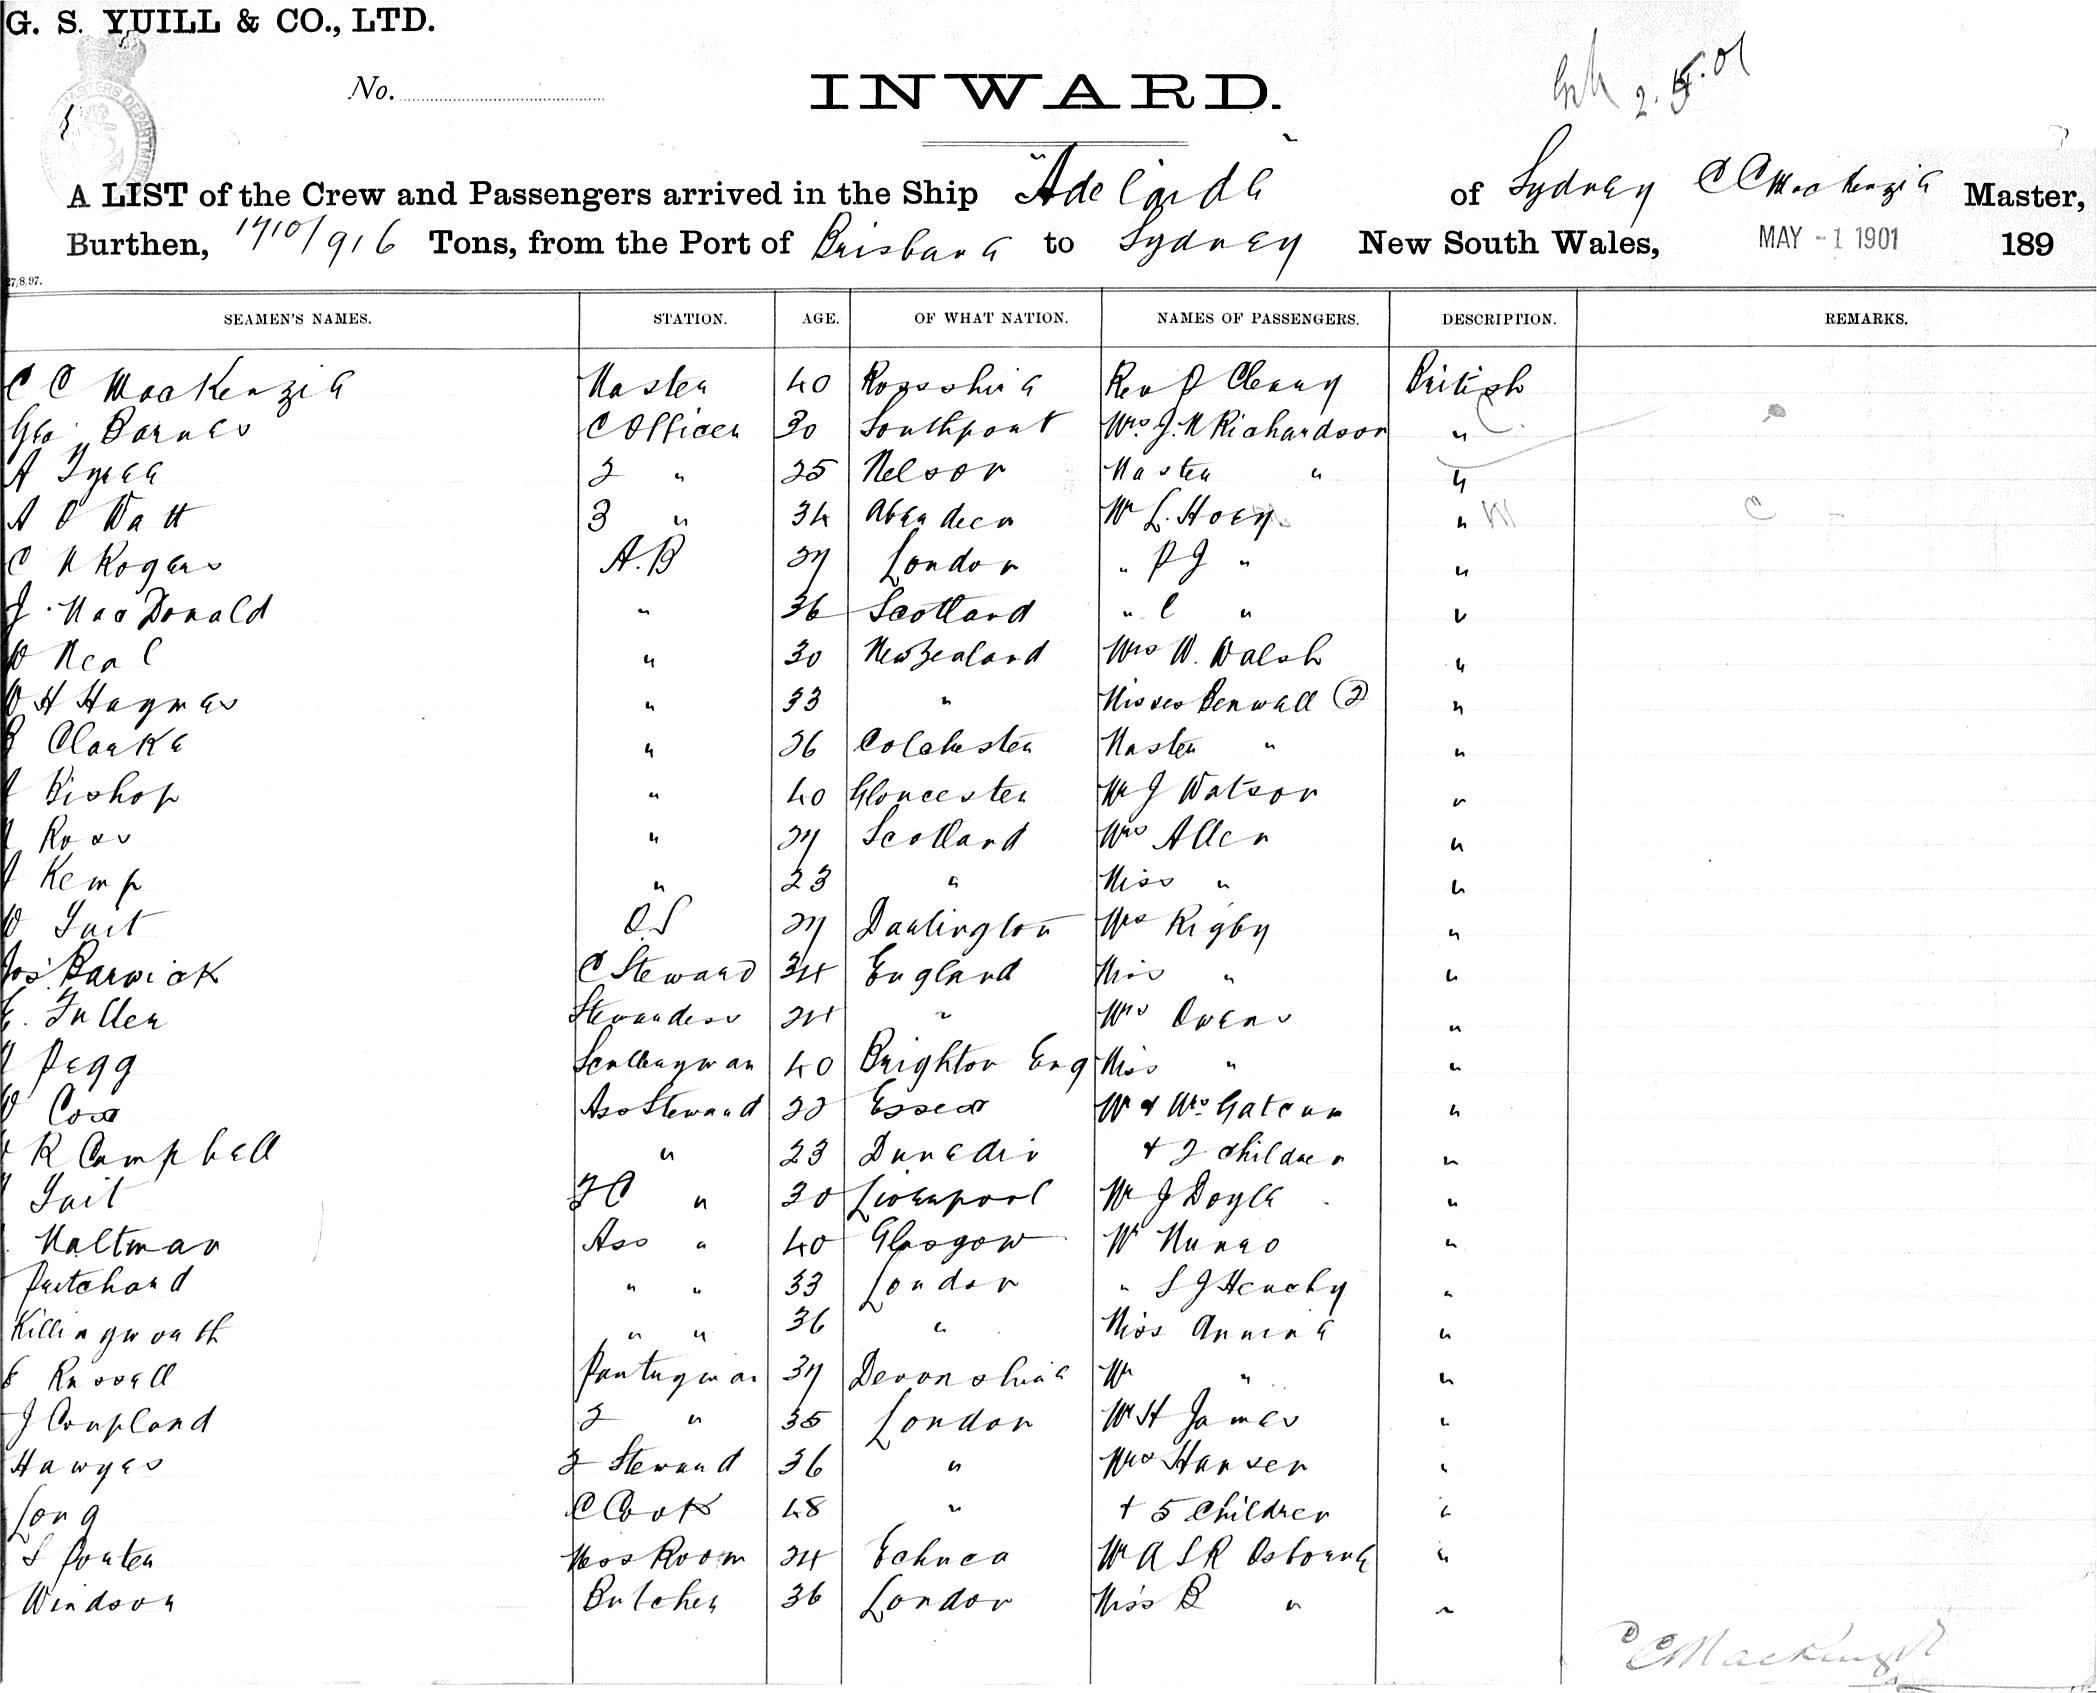 G. S. YUILL & CO., LTD.
No.
INWARD.
2.5.01
A LIST of the Crew and Passengers arrived in the Ship "Adelaide" of Sydney C C MacKenzie Master,
Burthen, 1710/916 Tons, from the Port of Brisbane to Sydney New South Wales, MAY -1 1901 189
27/8/97.
SEAMEN'S NAMES. STATION. AGE. OF WHAT NATION. NAMES OF PASSENGERS. DESCRIPTION. REMARKS.
C C MacKenzie Master 40 Rossshire Rev P Cleary British
Geo Barnes C Officer 30 Southport Mrs J. M Richardson "
A Tyree 2 " 25 Nelson Master " "
A D Watt 3 " 34 Aberdeen Mr L. Hoey "
C M Rogers A.B 27 London " P J " "
J. MacDonald " 36 Scotland " C " "
W Neal " 30 New Zealand Mrs W. Walsh "
W H Haymes " 33 " Misses Benwell (2) "
Clarke " 26 Colchester Master " "
Bishop " 40 Gloucester Mr J Watson "
Ross " 27 Scotland Mrs Allen "
Kemp " 23 " Miss " "
W Tait O.S 27 Darlington Mrs Rigby "
Jos Barwick C Steward 34 England Miss " "
E. Fuller Stewardess 24 " Mrs Owens "
Pegg Sculleryman 40 Brighton Eng Miss " "
W Cox Ass Steward 22 Essex Mr & Mrs Gatenm "
R Campbell " 23 Dunedin + 2 children "
Tait F C " 30 Liverpool Mr J Doyle "
Maltman Ass " 40 Glasgow Mr Munro "
Pritchard " " 33 London " S J Henchy "
Killingworth " " 36 " Miss "
Russell Pantryman 37 Devonshire Mr " "
J Coupland 2 " 35 London Mr H James "
Hawyes 2 Steward 36 " Mrs Hansen "
Long C Cook 48 " + 5 children "
S Porter Mess Room 24 Echuca Mr A S R Osborne "
Windsor Butcher 36 London Miss B " "
C C MacKenzie